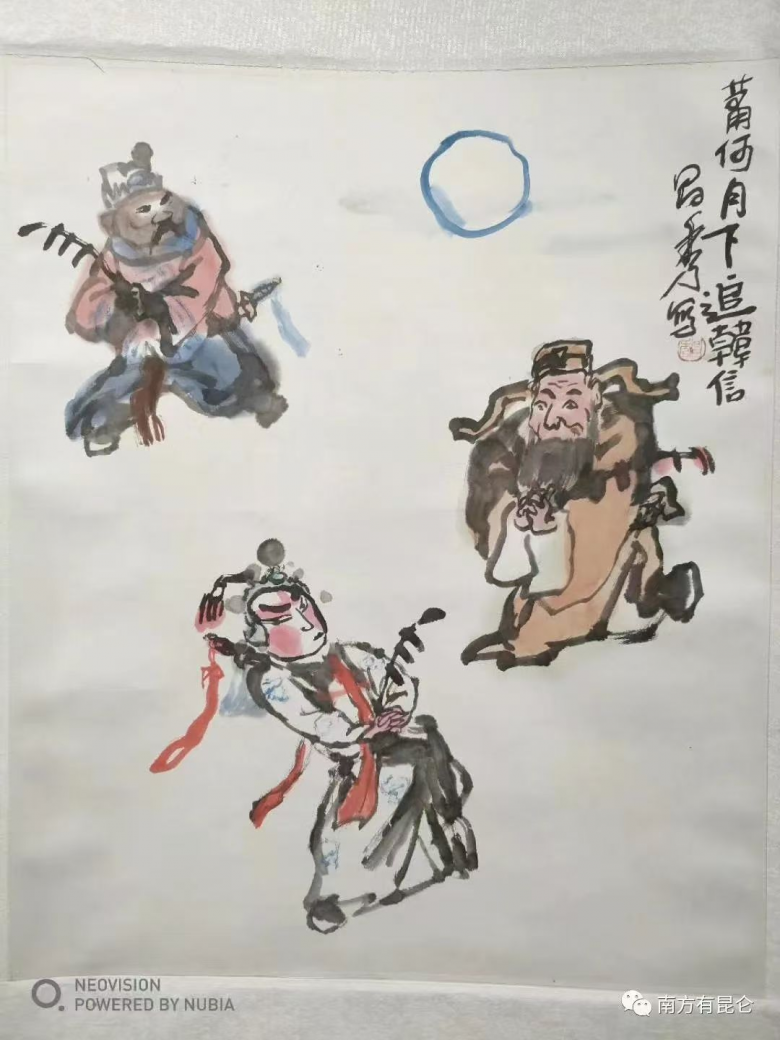 萧何月下追韓信
写
NEOVISION
POWERED BY NUBIA
南方有昆仑